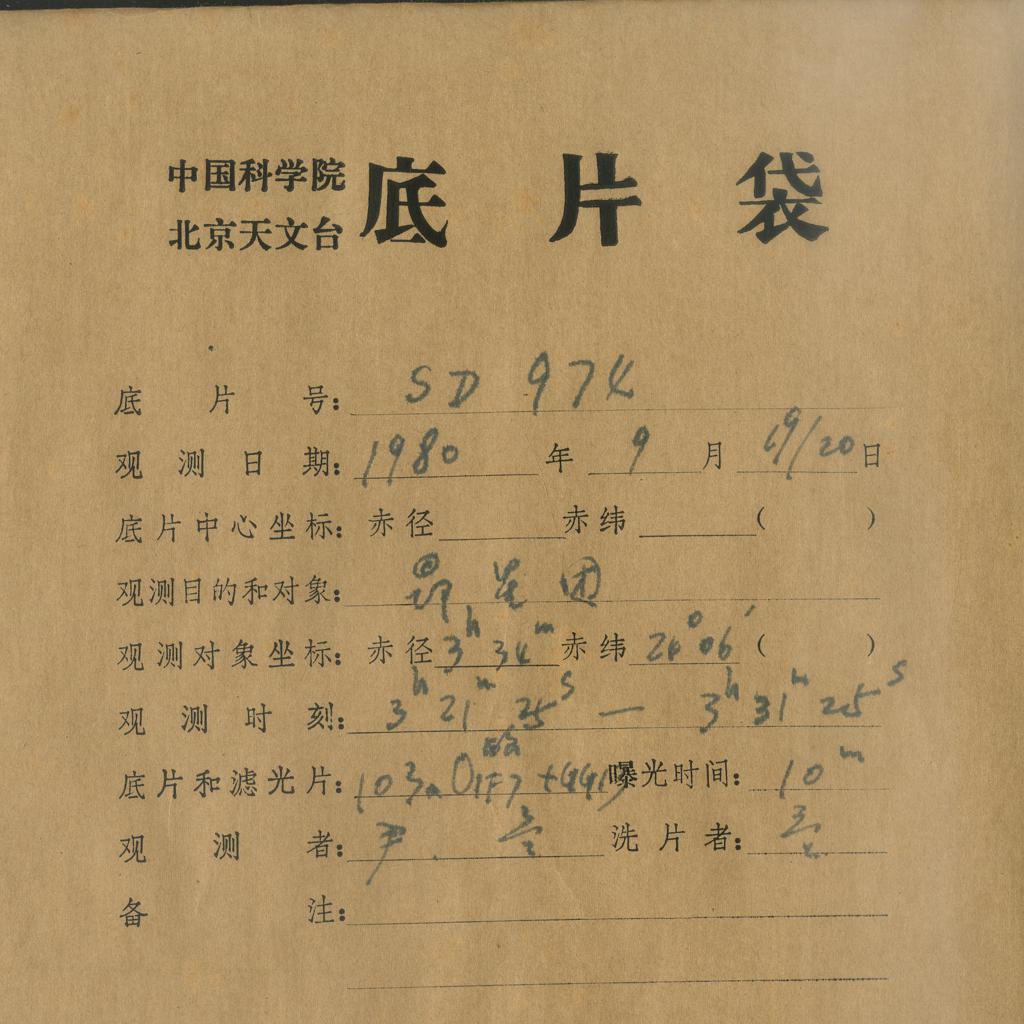 中国科学院
北京天文台
底片袋
底片号: SD 974
观测日期: 1980年 9月 19/20日
底片中心坐标: 赤径 赤纬 ( )
观测目的和对象: 昴星团
观测对象坐标: 赤径 3h 34m 赤纬 24° 06′ ( )
观测时刻: 3h 21m 25s — 3h 31m 25s
底片和滤光片: 103a 曝光时间: 10m
观测者: 尹. 洗片者:
备注: